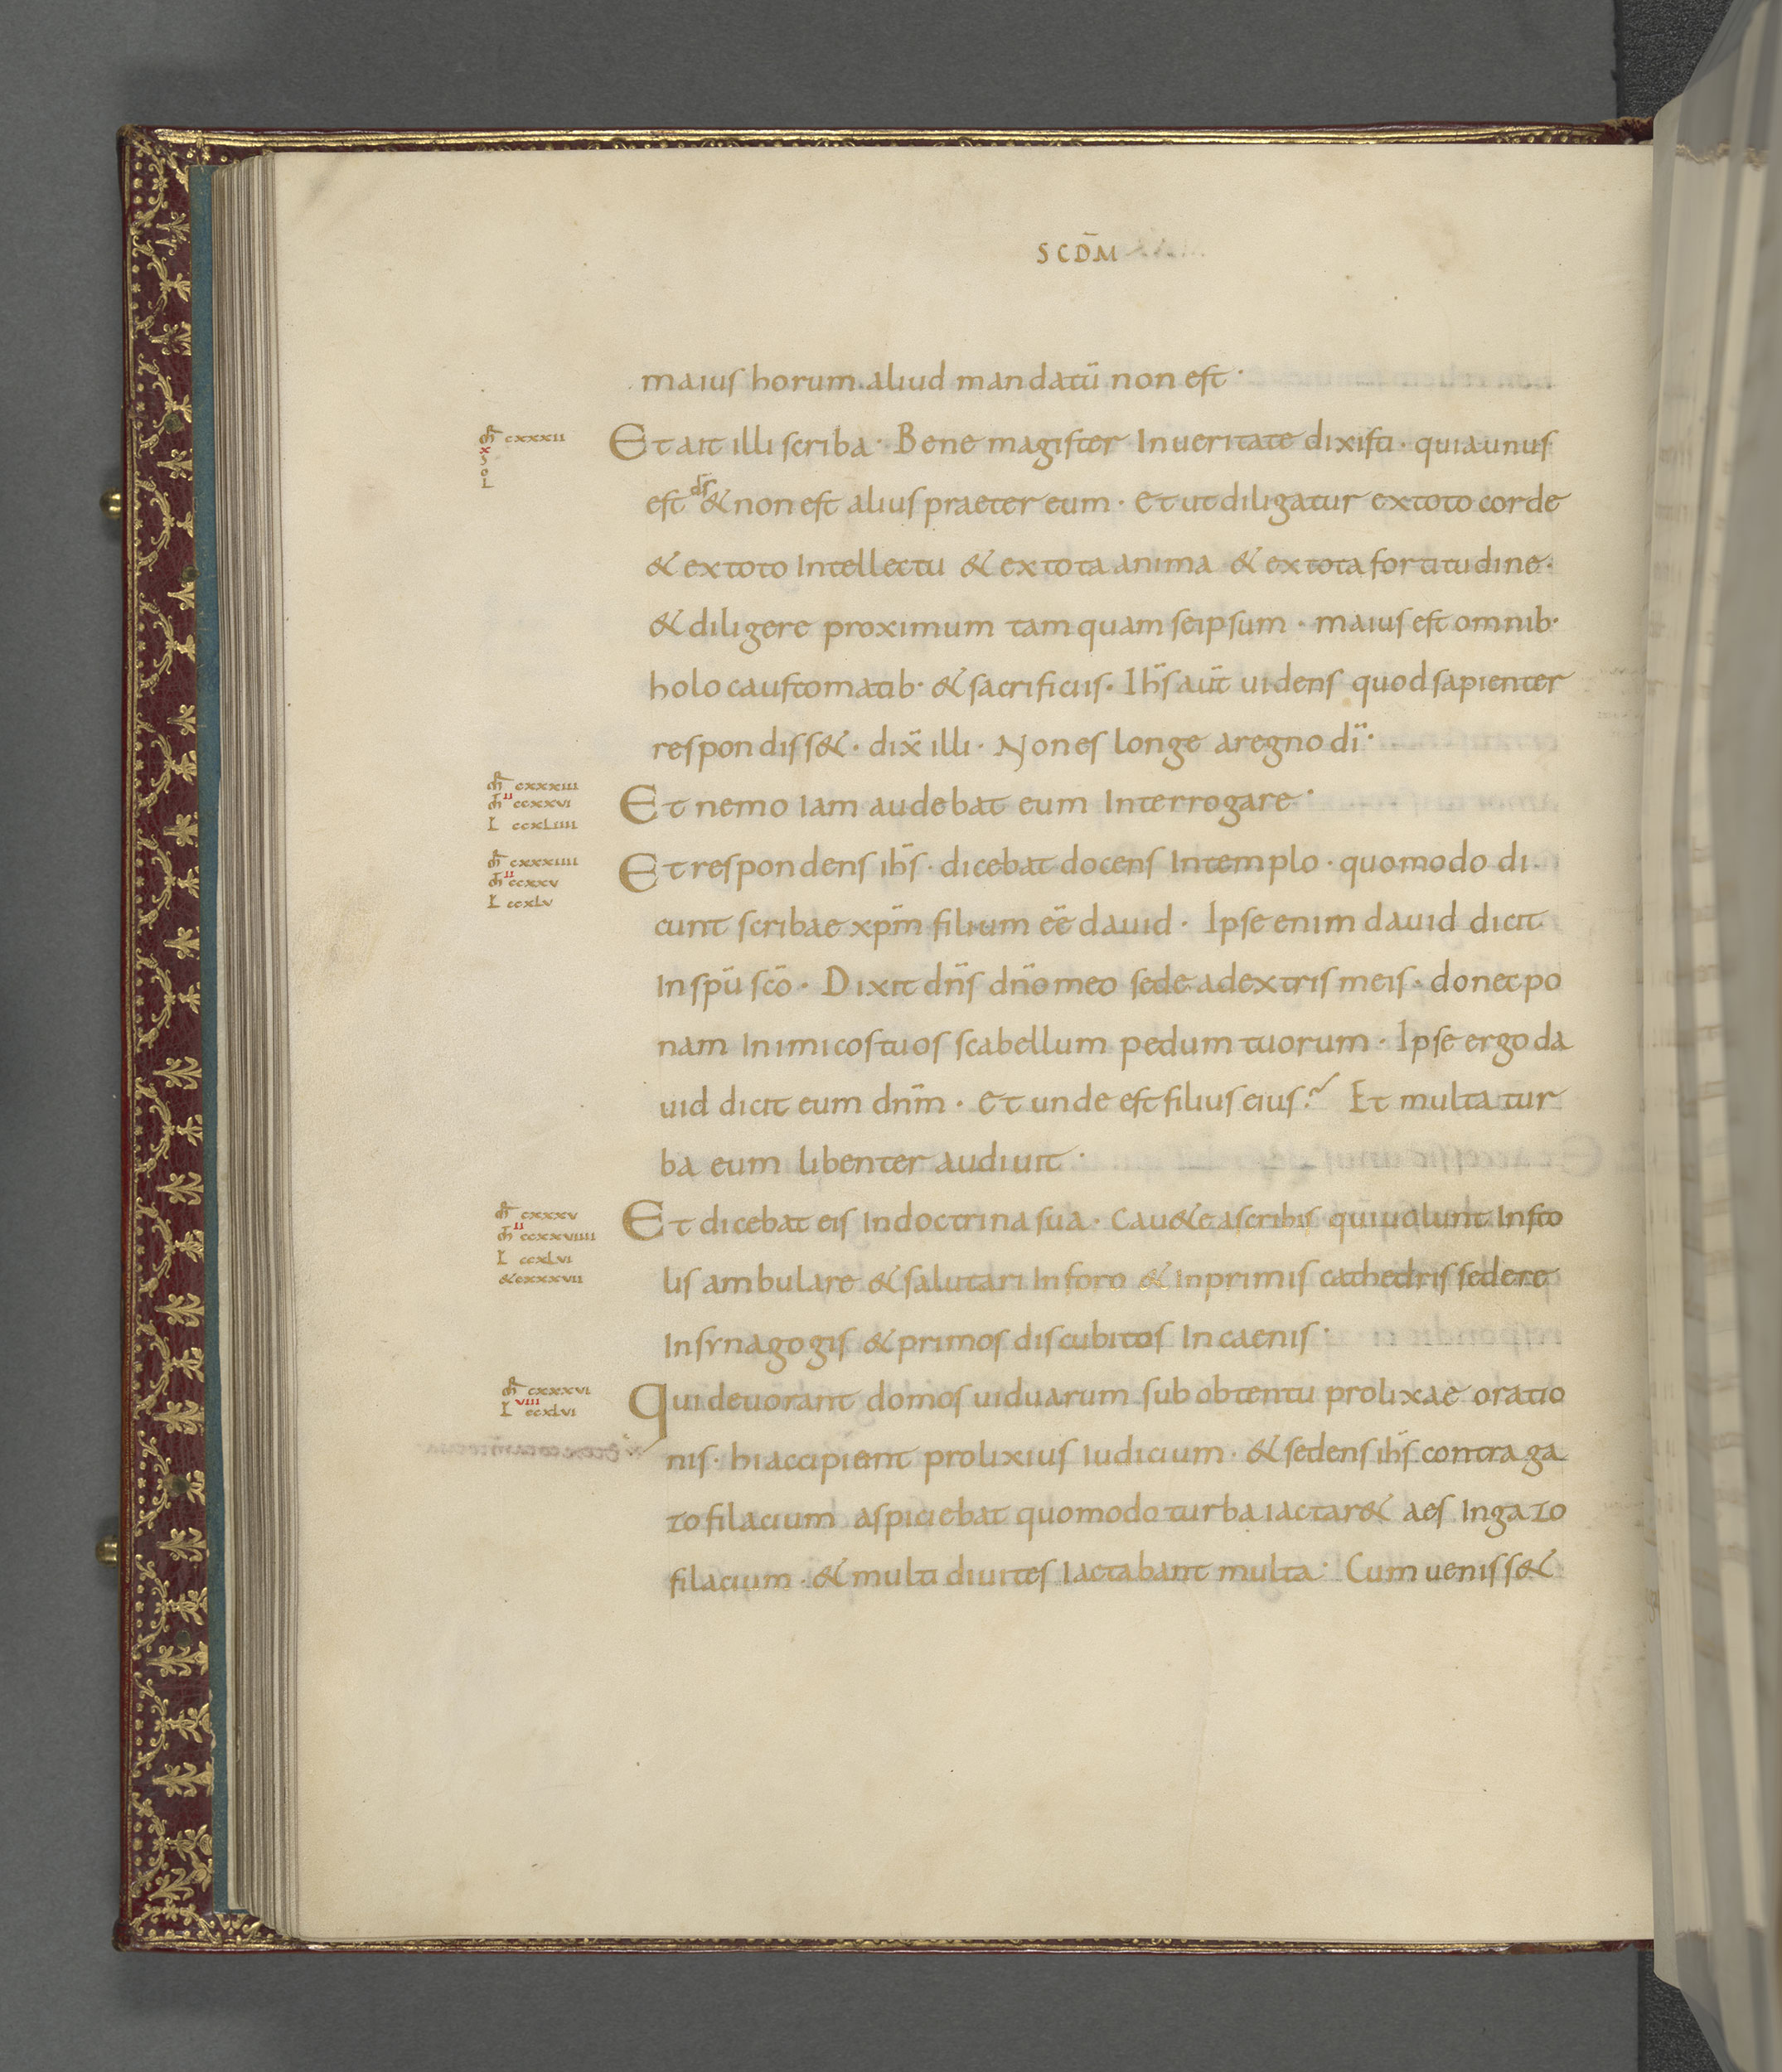 SCD̄M
maius horum aliud mandatū non est·
mr̄ cxxxii
x
S
o
L
Et ait illi scriba· Bene magister In ueritate dixisti· quia unus
est ds̄ & non est alius praeter eum· Et ut diligatur ex toto corde
& ex toto Intellectu & ex tota anima & ex tota fortitudine·
& diligere proximum tamquam seipsum· maius est omnib·
holocaustomatib· & sacrificiis· Ihs̄ aūt uidens quod sapienter
respondiss&· dix̄ illi· Non es longe a regno dī·
mr̄ cxxxiii
mt̄ ii ccxxvi
L ccxliiii
Et nemo Iam audebat eum Interrogare·
mr̄ cxxxiiii
mt̄ ii ccxxv
L ccxlv
Et respondens ihs̄· dicebat docens In templo· quomodo di
cunt scribae xpm̄ filium eē dauid· Ipse enim dauid dicit
In spū scō· Dixit dns̄ dnō meo sede a dextris meis· donec po
nam Inimicos tuos scabellum pedum tuorum· Ipse ergo da
uid dicit eum dnm̄· Et unde est filius eius? Et multa tur
ba eum libenter audiuit·
mr̄ cxxxv
mt̄ ii ccxxviiii
L ccxlvi
& cxxxvii
Et dicebat eis In doctrina sua· Cau&e a scribis qui uolunt In sto
lis ambulare & salutari In foro & In primis cathedris sedere
In synagogis & primos discubitos In caenis·
mr̄ cxxxvi
L viii ccxlvi
Qui deuorant domos uiduarum sub obtentu prolixae oratio
nis· hi accipient prolixius Iudicium· & sedens ihs̄ contra ga
zofilacium aspiciebat quomodo turba iactar& aes In gazo
filacium· & multi diuites Iactabant multa· Cum ueniss&